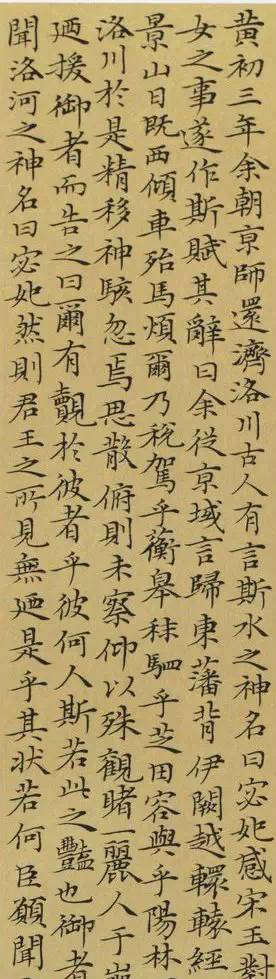 黄初三年余朝亰師還濟洛川古人有言斯水之神名曰宓妃感宋玉對
女之事遂作斯賦其辭曰余從亰域言歸東藩背伊闕越轘轅經
景山日既西傾車殆馬煩爾乃稅駕乎蘅皋秣駟乎芝田容與乎陽林
洛川於是精移神駭忽焉思散俯則未察仰以殊觀睹一麗人于
迺援御者而告之曰爾有覿於彼者乎彼何人斯若此之豔也御者
聞洛河之神名曰宓妃然則君王之所見無迺是乎其状若何臣願聞